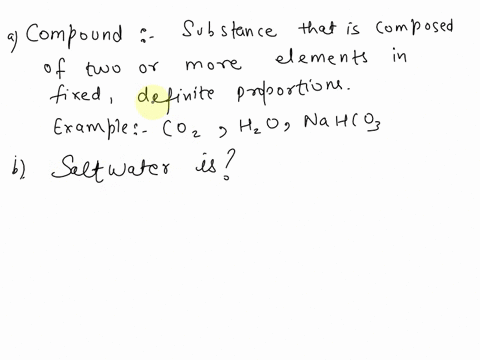 a) Compound :- Substance that is composed
of two or more elements in
fixed, definite proportions.
Example:- CO2, H2O, NaHCO3
b) Saltwater is?